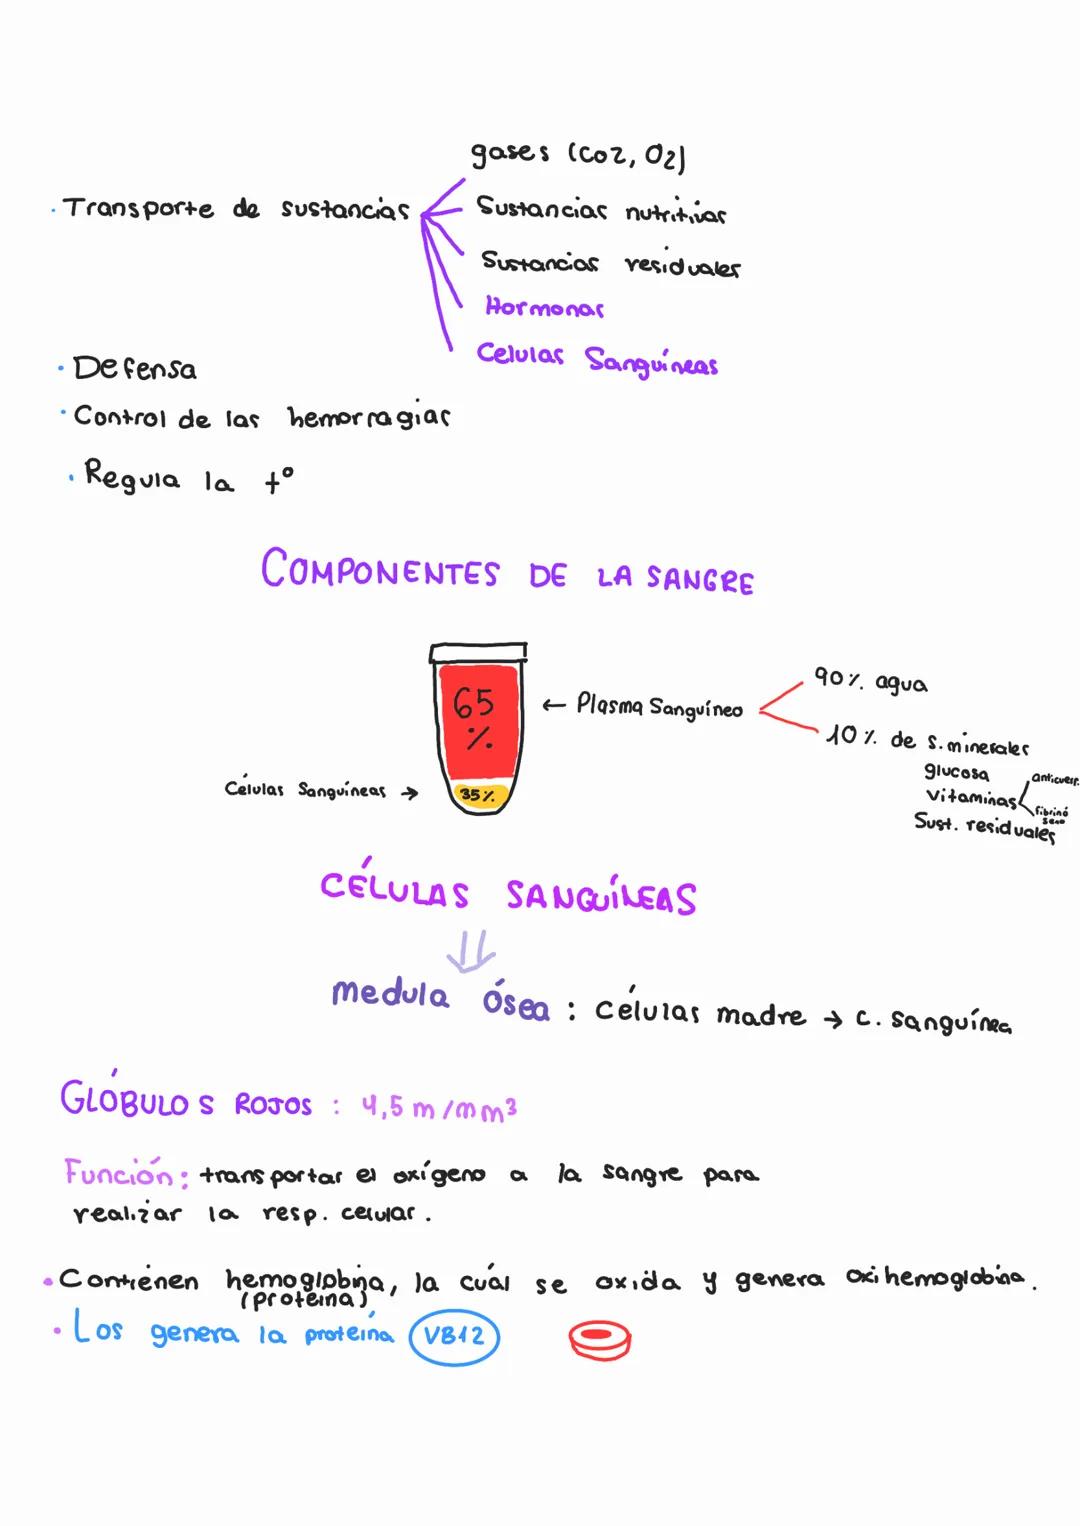 gases (CO2, O2)
· Transporte de sustancias
Sustancias nutritivas
Sustancias residuales
Hormonas
Celulas Sanguíneas
· Defensa
· Control de las hemorragias
· Regula la tº
COMPONENTES DE LA SANGRE
65
%
← Plasma Sanguíneo
90% agua
10% de s. minerales
glucosa
anticuerp.
Vitaminas
fibrinó
geno
Sust. residuales
Células Sanguíneas →
35%
CÉLULAS SANGUÍNEAS
medula ósea : células madre → c. sanguínea
GLÓBULOS ROJOS : 4,5 m/mm³
Función: transportar el oxígeno a la sangre para
realizar la resp. celular.
· Contienen hemoglobina, la cuál se oxida y genera oxihemoglobina.
(proteina)
· Los genera la proteína VB12